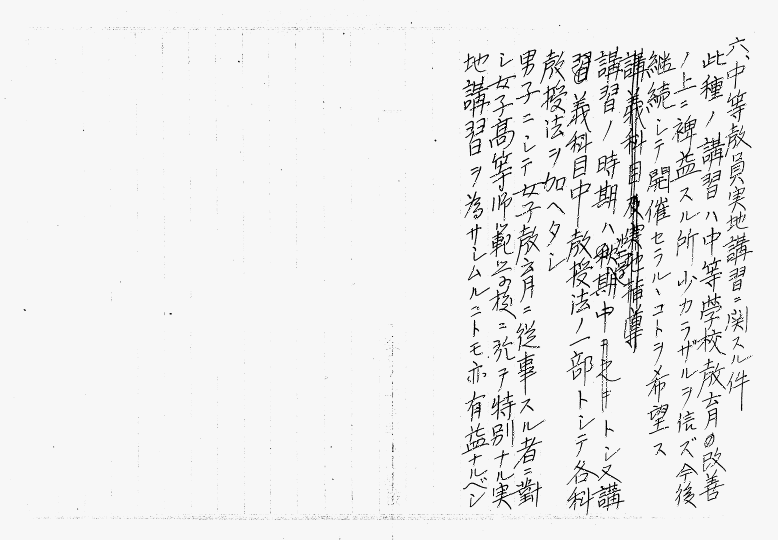 六、中等教員実地講習ニ関スル件
此種ノ講習ハ中等學校教育の改善
ノ上ニ裨益スル所少カラザルヲ信ズ今後
継続シテ開催セラルヽコトヲ希望ス
講義科目及実地指導
講習ノ時期ハ秋期中ヲ可トシ又講
習義科目中教授法ノ一部トシテ各科
教授法ヲ加ヘタシ
男子ニシテ女子教育ニ従事スル者ニ對
シ女子高等師範学校ニ於テ特別ナル実
地講習ヲ為サシムルコトモ亦有益ナルベシ